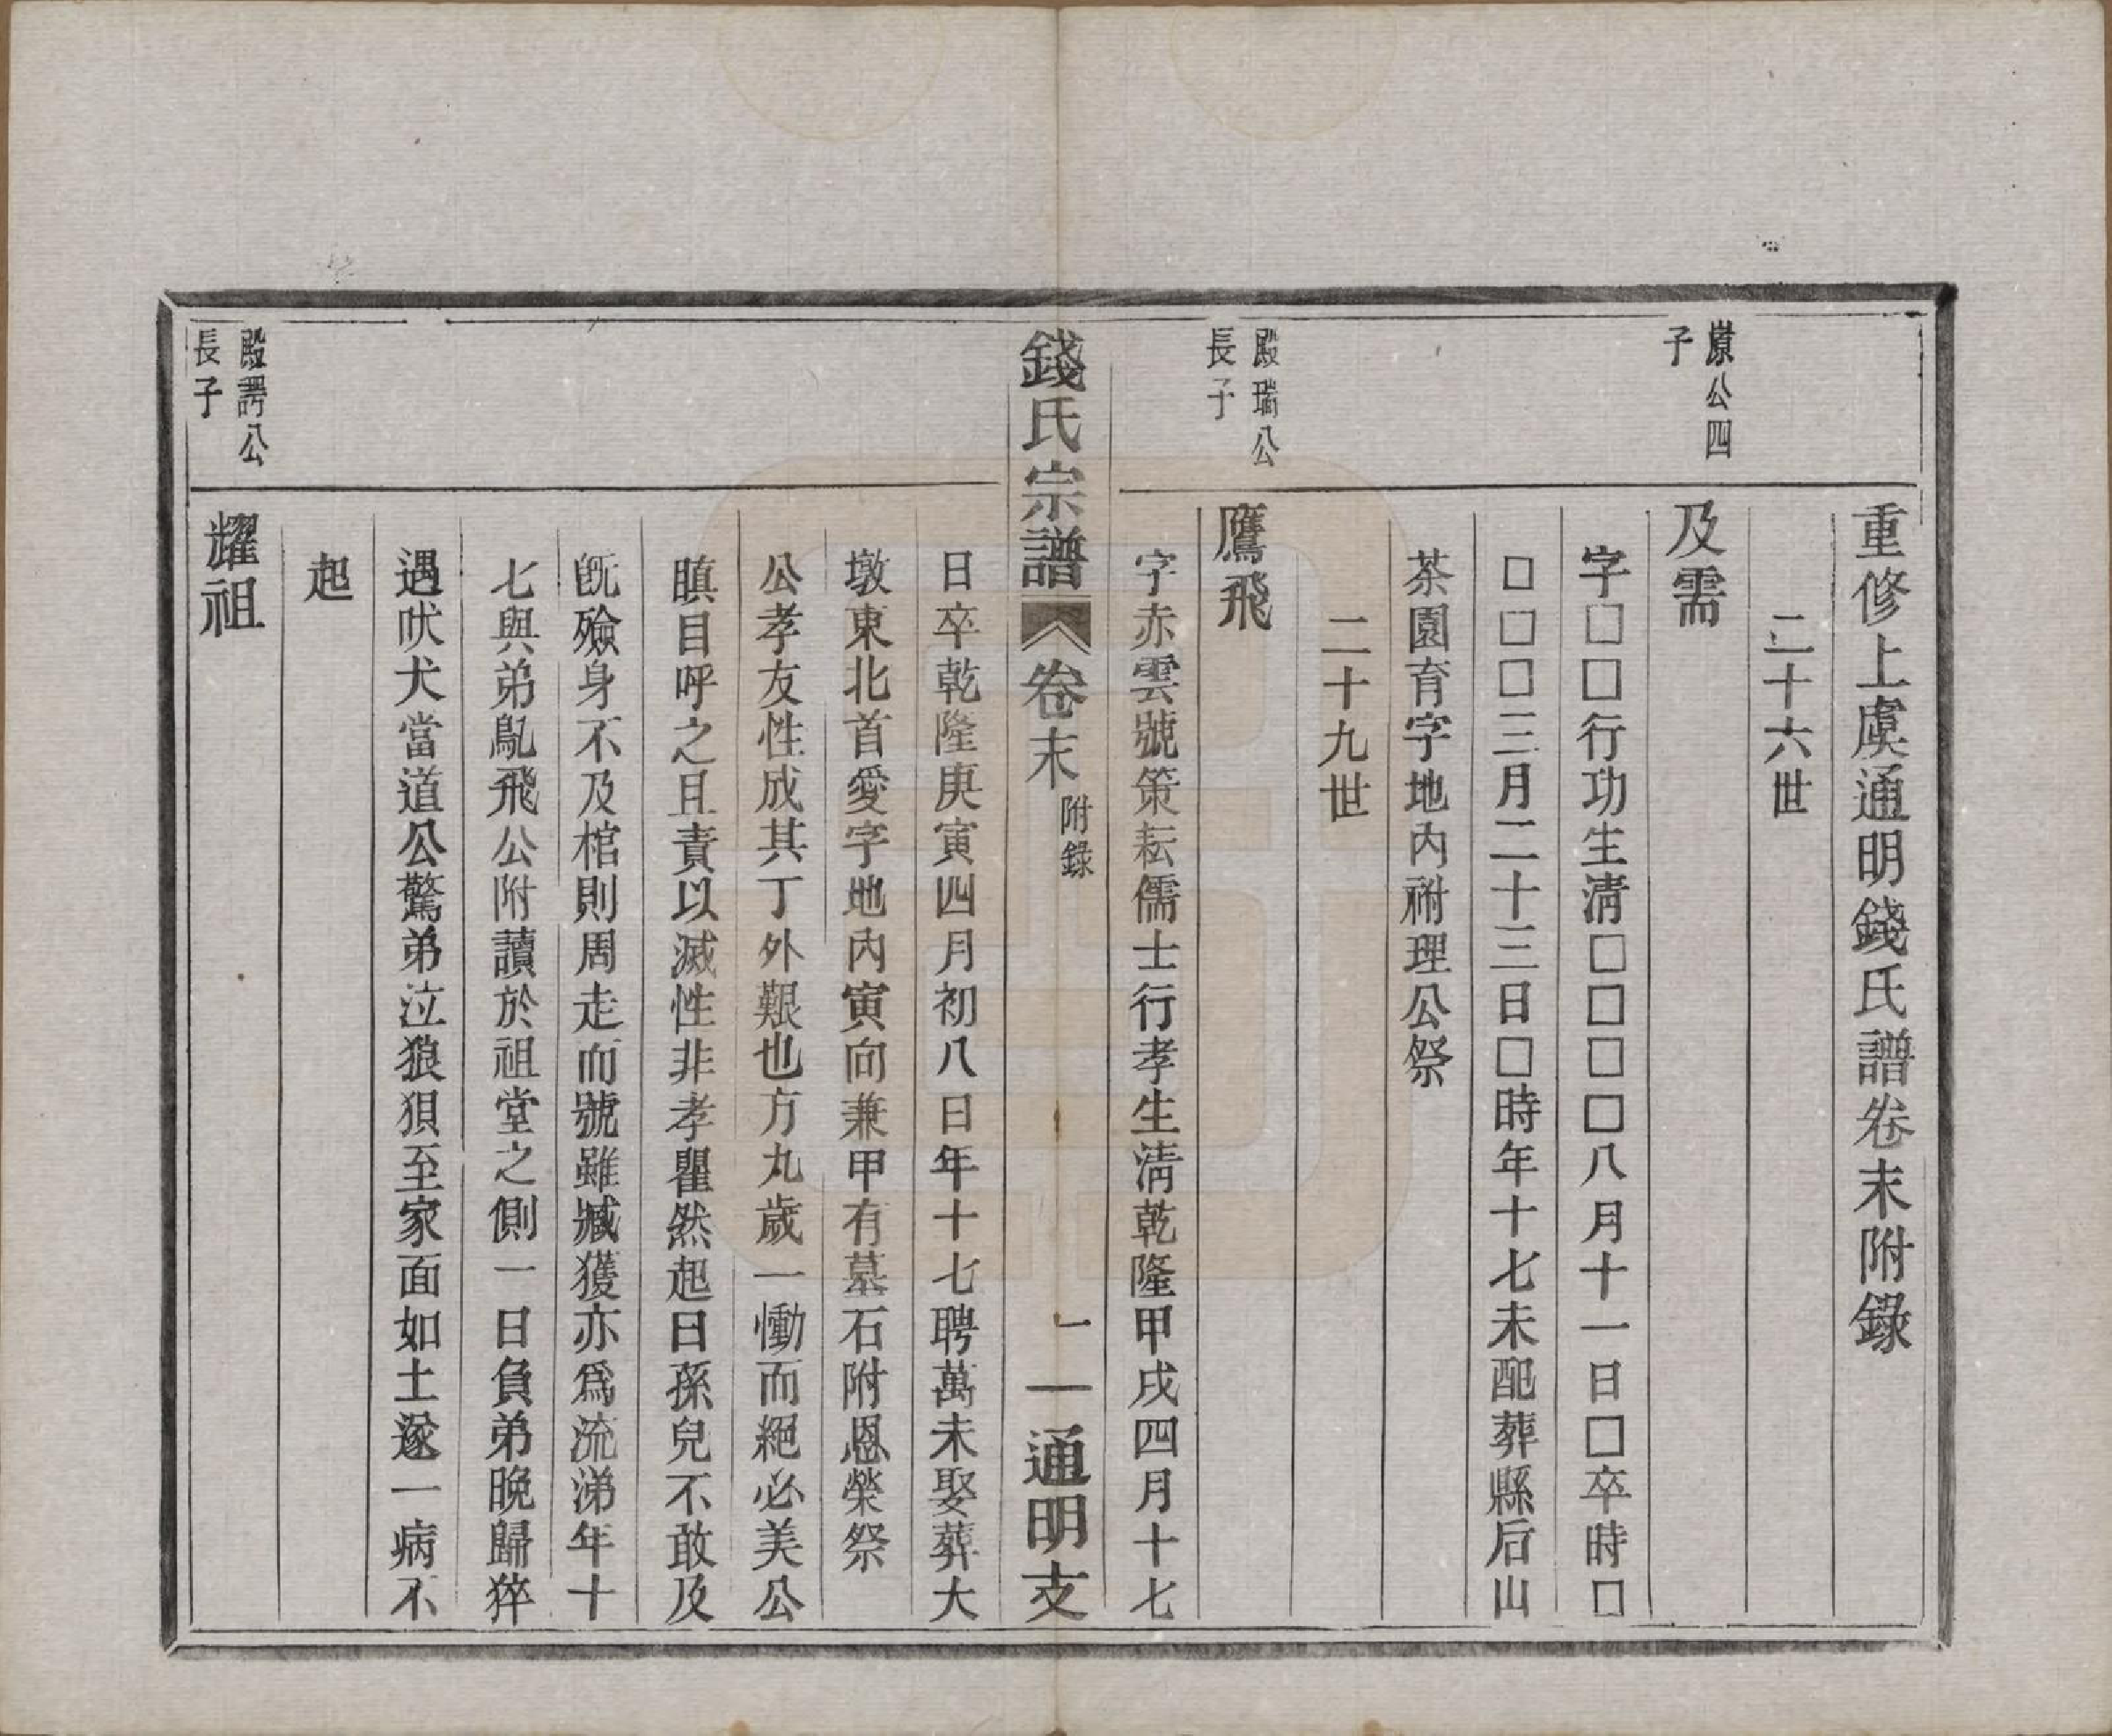 重修上虞通明錢氏譜卷末附錄
二十六世
嵩公四
子
及需
字□□行功生淸□□□□八月十一日□卒時□
□□□三月二十三日□時年十七未配葬縣后山
茶園育字地內祔理公祭
二十九世
殿瑞公
長子
鷹飛
字赤雲號策耘儒士行孝生淸乾隆甲戌四月十七
錢氏宗譜
卷末
附錄
一
通明支
日卒乾隆庚寅四月初八日年十七聘萬未娶葬大
墩東北首愛字地內寅向兼甲有墓石附恩榮祭
公孝友性成其丁外艱也方九歲一慟而絕必美公
瞋目呼之且責以滅性非孝瞿然起曰孫兒不敢及
旣殮身不及棺則周走而號雖臧獲亦爲流涕年十
七與弟鳧飛公附讀於祖堂之側一日負弟晚歸猝
遇吠犬當道公驚弟泣狼狽至家面如土遂一病不
起
殿諤公
長子
耀祖